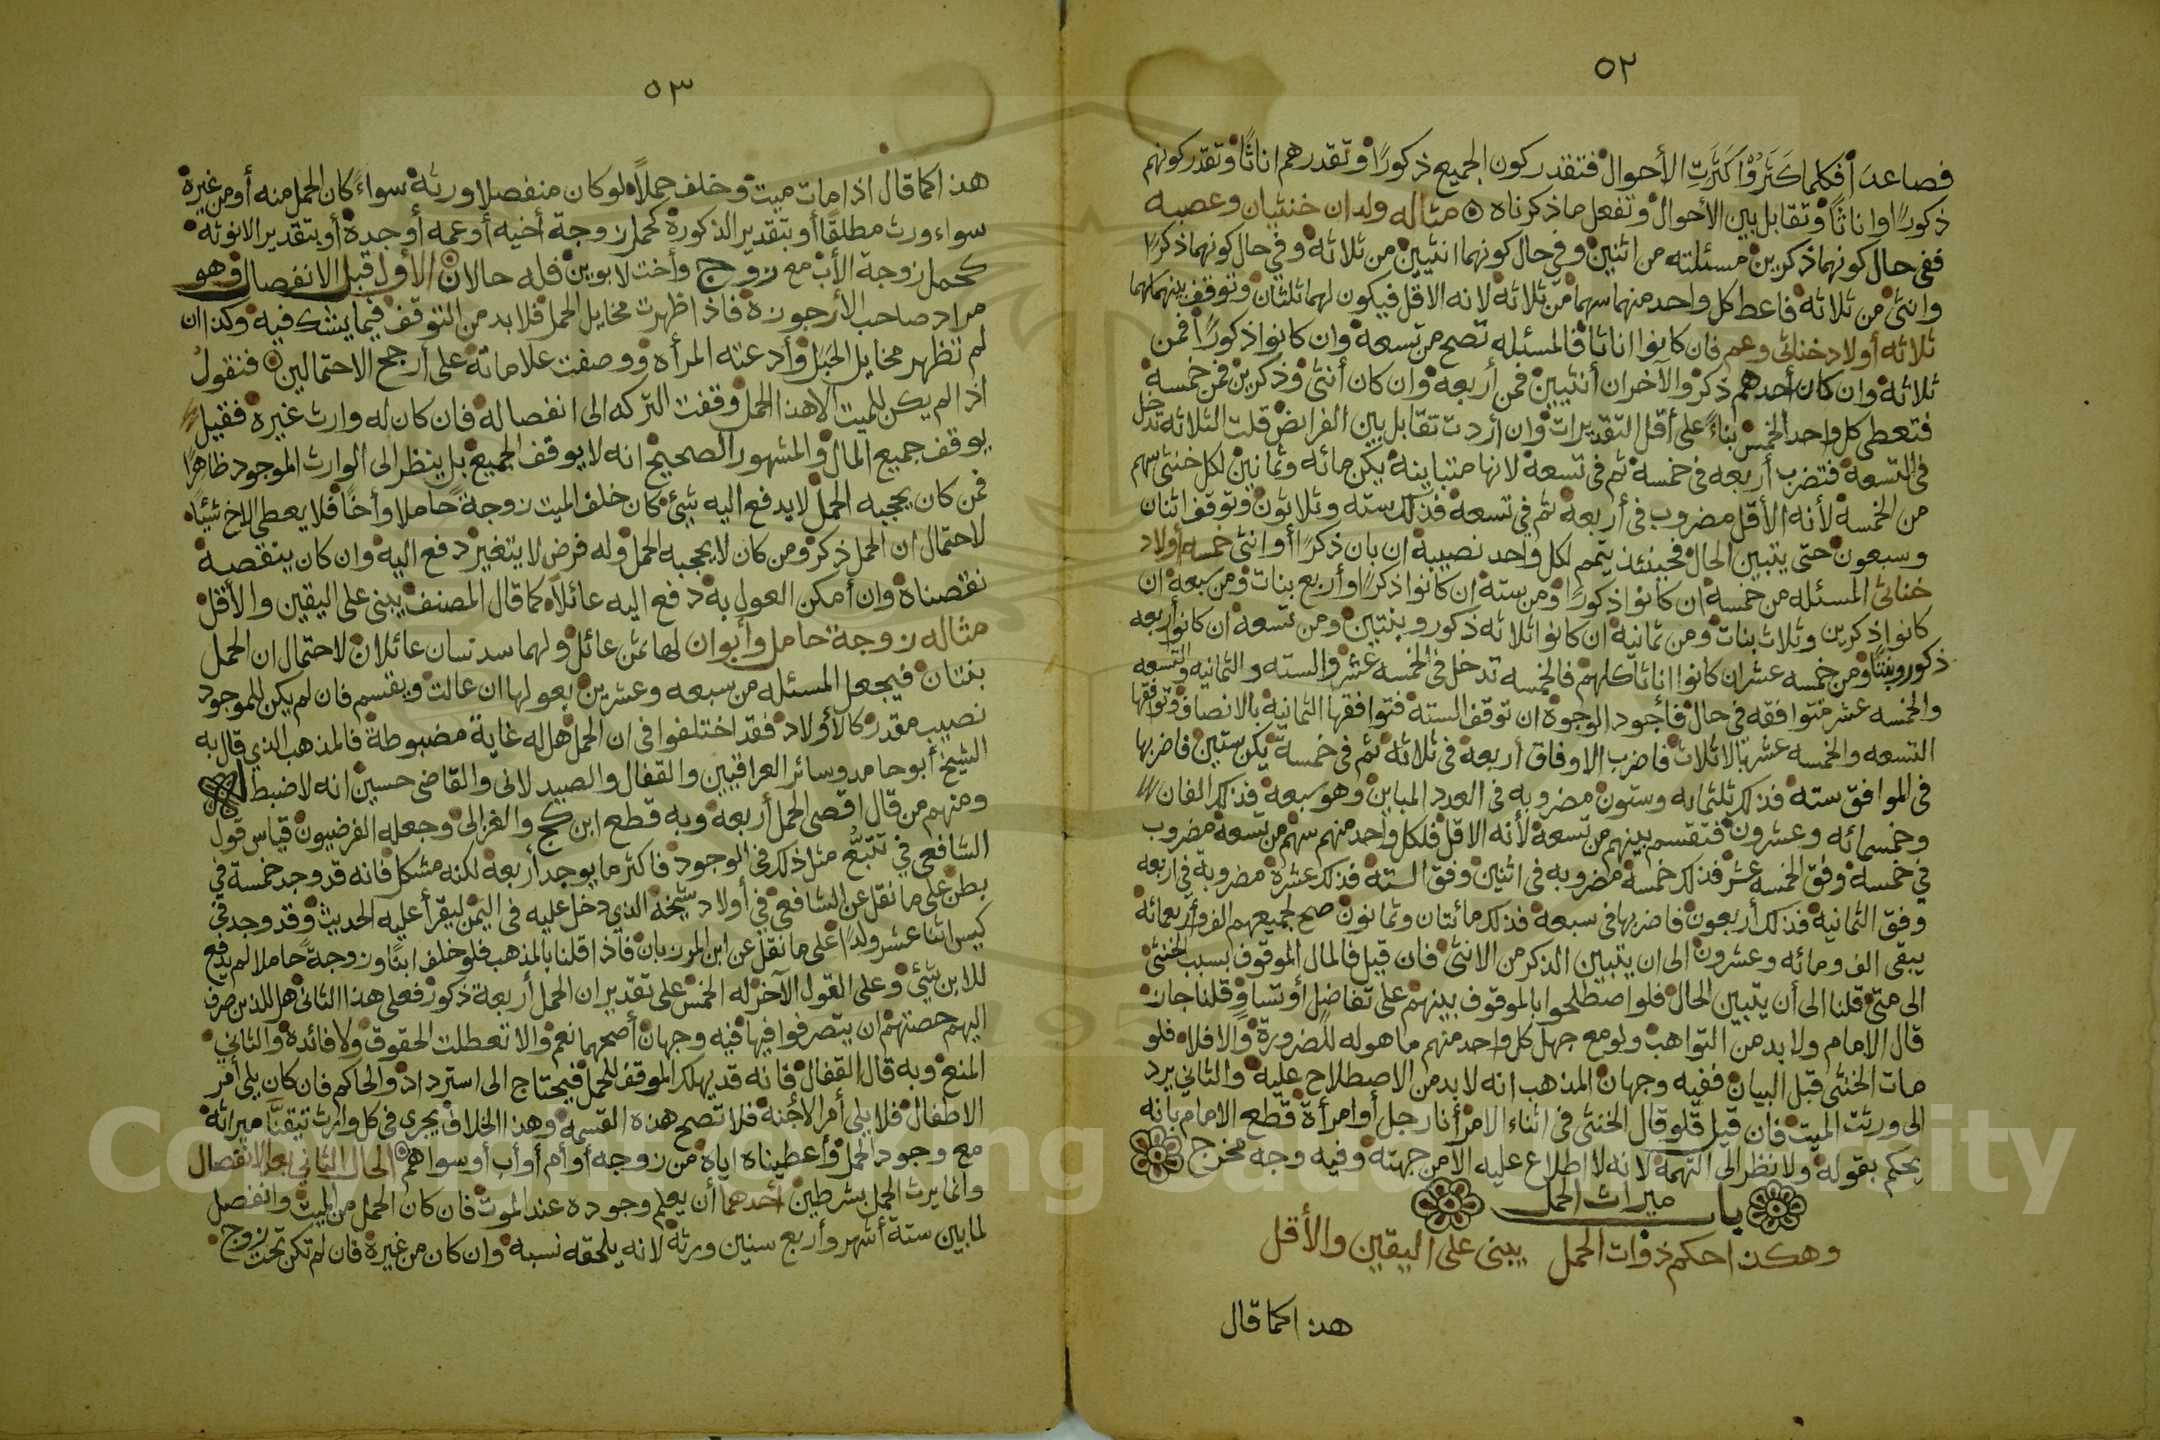 ٥٢
فصاعدًا فكلما كَثَرُوْا كَثَرَتِ الأحوال فتقدر كون الجميع ذكورًا وتقدرهم اناثًا وتقدر كونهم
ذكورًا واناثًا وتقابل بين الأحوال وتفعل ما ذكرناه مثاله ولدان خنثيان وعصبه
ففى حال كونهما ذكرين مسئلته من اثنين وفى حال كونهما انثيين من ثلاثة وفي حال كونهما ذكرًا
وانثى من ثلاثة فاعط كل واحد منهما سهما من ثلاثة لانه الاقل فيكون لهما ثلثان وتوقف بينهما سهما
ثلاثه أولاد خناثى وعم فان كانوا اناثا فالمسئله تصح من تسعة وان كانوا ذكورًا فمن
ثلاثة وان كان أحدهم ذكر والآخران أنثيين فمن أربعة وان كان أنثى وذكرين فمن خمسة
فتعطى كل واحد الخمس بناءً على أقل التقديرات وان أردت تقابل بين الفرائض قلت الثلاثه تدخل
فى التسعة فتضرب أربعه فى خمسة ثم فى تسعة لانها متباينة يكن مائه وثمانين لكل خنثى سهم
من الخمسة لأنه الأقل مضروب فى أربعة ثم في تسعه فذلك سته وثلاثون وتوقف اثنان
وسبعون حتى يتبين الحال فحينئذ يتمم لكل واحد نصيبه ان بان ذكرًا أو انثى خمسه أولاد
خناثى المسئله من خمسة ان كانوا ذكورًا ومن سته ان كانوا ذكرًا وأربع بنات ومن سبعة ان
كانوا ذكرين وثلاث بنات ومن ثمانية ان كانوا ثلاثه ذكور وبنتين ومن تسعة ان كانوا أربعه
ذكور وبنتًا ومن خمسه عشر ان كانوا اناثًا كلهم فالخمسه تدخل فى الخمسه عشر والسته والثمانيه والتسعه
والخمسه عشر متوافقه فى حال فأجود الوجوه ان توقف الستة فتوافقها الثمانية بالانصاف وتوافقها
التسعه والخمسه عشر بالاثلاث فاضرب الاوفاق أربعه فى ثلاثه ثم فى خمسة يكن ستين فاضربها
فى الموافق سته فذلك ثلثمايه وستون مضروبه فى العدد المباين وهو سبعه فذلك الفان
وخمسمائه وعشرون فتقسم بينهم من تسعة لأنه الاقل فلكل واحد منهم سهم من تسعة مضروب
في خمسة وفق الخمسه عشر فذلك خمسة مضروبه فى اثنين وفق الستة فذلك عشرة مضروبة في اربعه
وفق الثمانية فذلك أربعون فاضربها فى سبعة فذلك مائتان وثمانون صح لجميعهم الف وأربعمائة
يبقى الف ومائه وعشرون الى ان يتبين الذكر من الانثى فان قيل فالمال الموقوف بسبب الخنثى
الى متى قلنا الى أن يتبين الحال فلو اصطلحوا بالموقوف بينهم على تفاضل أو تساو وقلنا جاز
قال الامام ولا بد من التواهب ولو مع جهل كل واحد منهم ما هوله للضرورة والا فلا فلو
مات الخنثى قبل البيان ففيه وجهان المذهب انه لا بد من الاصطلاح عليه والثاني يرد
الى ورثت الميت فأن قيل فلو قال الخنثى فى اثناء الامر أنا رجل أو امرأة قطع الامام بانه
يحكم بقوله ولا نظر الى التهمة لانه لا اطلاع عليه الا من جهته وفيه وجه مخرج
باب ميراث الحمل
وهكذا حكم ذوات الحمل يبنى على اليقين والأقل
هذا كما قال
٥٣
هذا كما قال اذا مات ميت وخلف حملاً لو كان منفصلا ورثه سواءً كان الحمل منه أو من غيره
سواء ورث مطلقًا أو بتقدير الذكورة كحمل زوجة أخيه أو عمه أو جده أو بتقدير الانوثه
كحمل زوجة الأب مع زوج وأخت لابوين فله حالان الأول قبل الانفصال وهو
مراد صاحب الأرجوزة فاذا ظهرت مخايل الحمل فلا بد من التوقف فيما يشك فيه وكذا ان
لم تظهر مخايل الحبل وأدعته المرأه ووصفت علاماته على أرجح الاحتمالين فنقول
اذا لم يكن للميت الا هذا الحمل وقفت التركه الى انفصاله فان كان له وارث غيره فقيل
يوقف جميع المال والمشهور الصحيح انه لا يوقف الجميع بل ينظر الى الوارث الموجود ظاهرًا
فمن كان يحجبه الحمل لا يدفع اليه شئ كان خلف الميت زوجة حاملا وأخًا فلا يعطى الاخ شيئًا
لاحتمال ان الحمل ذكر ومن كان لا يحجبه الحمل وله فرض لا يتغير دفع اليه وان كان ينقصه
نقصناه وان أمكن العول به دفع اليه عائلاً كما قال المصنف يبنى على اليقين والأقل
مثاله زوجة حامل وأبوان لها ثمن عائل ولهما سدسان عائلان لاحتمال ان الحمل
بنتان فيجعل المسئله من سبعه وعشرين بعولها ان عالت ويقسم فان لم يكن للموجود
نصيب مقدر كالأولاد فقد اختلفوا فى ان الحمل هل له غاية مضبوطة فالمذهب الذي قال به
الشيخ أبو حامد وسائر العراقيين والقفال والصيدلانى والقاضى حسين انه لا ضبط له
ومنهم من قال اقصى الحمل أربعه وبه قطع ابن كج والغزالى وجعله الفرضيون قياس قول
الشافعي في تتبُّع مثل ذلك فى الموجود فاكثر ما يوجد أربعة لكنه مشكل فانه قد وجد خمسة في
بطن على ما نقل عن الشافعي في أولاد شيخه الذي دخل عليه فى اليمن ليقرأ عليه الحديث وقد وجد في
كيس اثنا عشر ولدًا على ما نقل عن ابن المرزبان فاذا قلنا بالمذهب فلو خلف ابنًا وزوجة حاملا لم يدفع
للابن شئ وعلى القول الآخر له الخمس على تقدير ان الحمل أربعة ذكور فعلى هذا الثانى هل للذين صرف
اليهم حصتهم ان يتصرفوا فيها فيه وجهان أصحهما نعم والا تعطلت الحقوق ولا فائدة والثاني
المنع وبه قال القفال فانه قد يهلك الموقف للحمل فيحتاج الى استرداد والحاكم فان كان يلى أمر
الاطفال فلا يلى أمر الأجنه فلا تصح هذه القسمه وهذا الخلاف يجرى فى كل وارث تيقنَّا ميراثه
مع وجود الحمل وأعطيناه اياه من زوجه أو أم أو أب أو سواهم الحال الثانى بعد الانفصال
وانما يرث الحمل بشرطين أحدهما أن يعلم وجوده عند الموت فان كان الحمل من الميت وانفصل
لما بين ستة أشهر وأربع سنين ورثه لانه يلحقه نسبه وان كان من غيره فان لم تكن تحت زوج